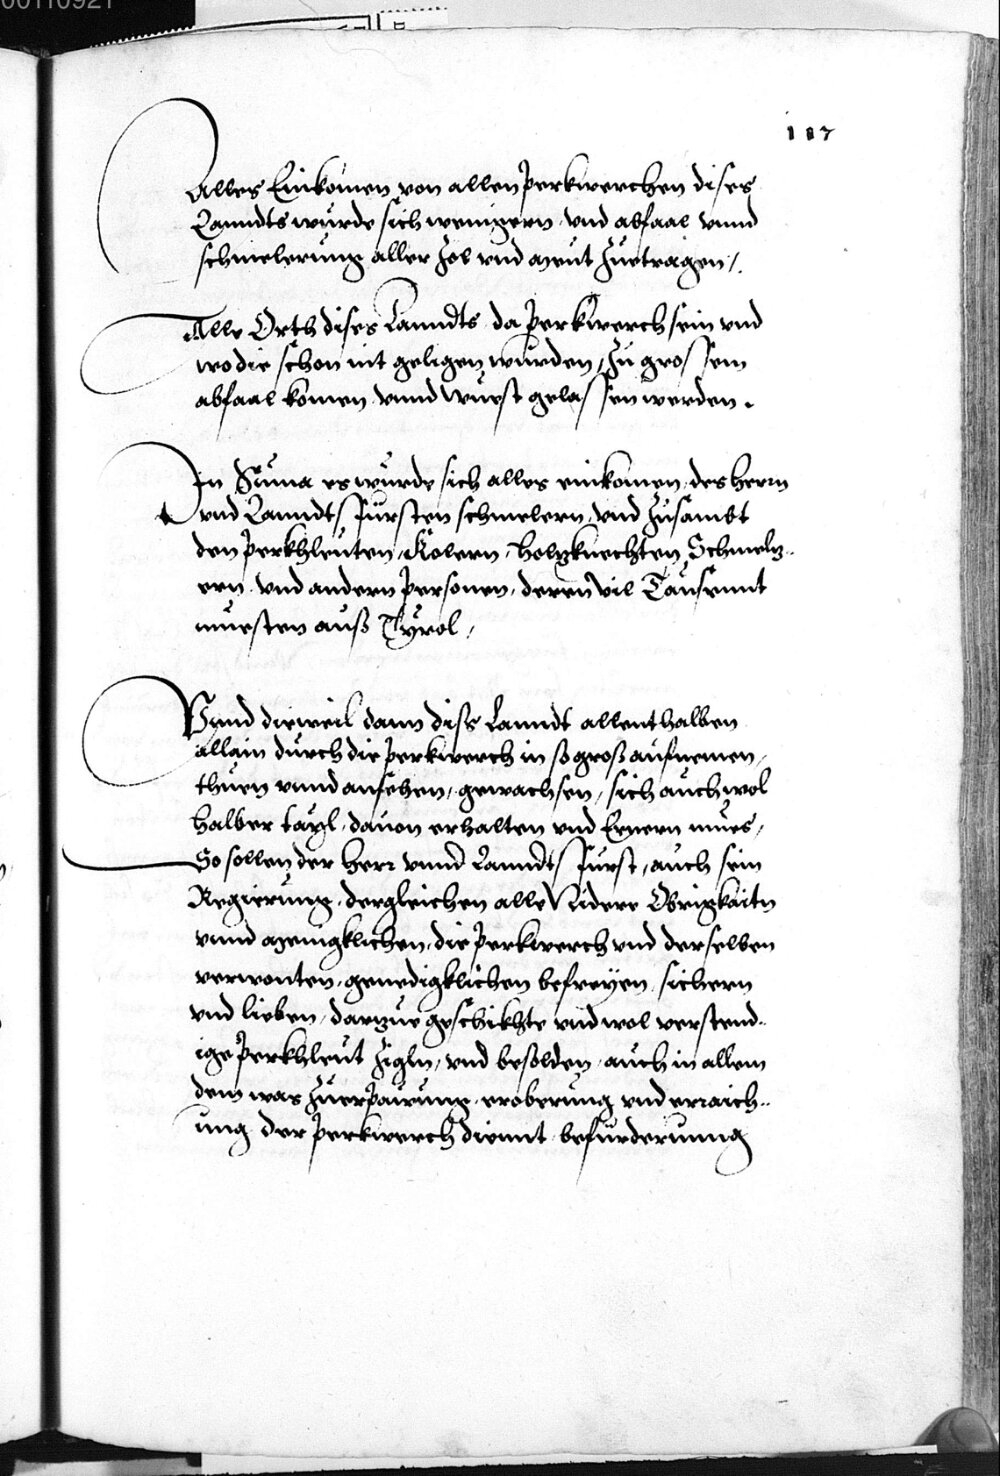 00110921
187
Alles Einkomen von allen Perkwerchen dises
Lanndts wurde sich wenigern vnd abfaal vnnd
schmelerung aller Zol vnd meut Zuetragen /.
Alle Orth dises Lanndts da Perkwerch sein vnd
wo die schon nit geligen wurden / Zu grossem
abfaal komen vnnd wuest gelassen werden.
In Suma es wurde sich alles einkomen, des herrn
vnd Lanndts Fürsten schmelern, vnd Zusambt
den Perkhleuten, Kolern, holzknechten, Schmelz„
ern vnd andern Personen, deren vil Tausennt
muesten auß Tyrol,
Vnnd dieweil dann diss Lanndt allenthalben
allain durch die Perkwerch in so groß aufnemen,
thuen vnnd ansehen, gewachsen, sich auch wol
halber tayl, dauon erhalten vnd Ernern mues,
So sollen der herr vnnd Lanndts Fürst, auch sein
Regierung, dergleichen alle Nidere Obrigkaitn
vnnd menigklichen, die Perkwerch vnd derselben
verwonten, genedigklichen befreyen, sichern
vnd lieben, darzue geschikhte vnd wol verstend„
ige Perkhleut Zigln, vnd besolden, auch in allem
dem was Zuerpauung, eroberung vnd erraich„
ung der Perkwerch diennt befurderunng